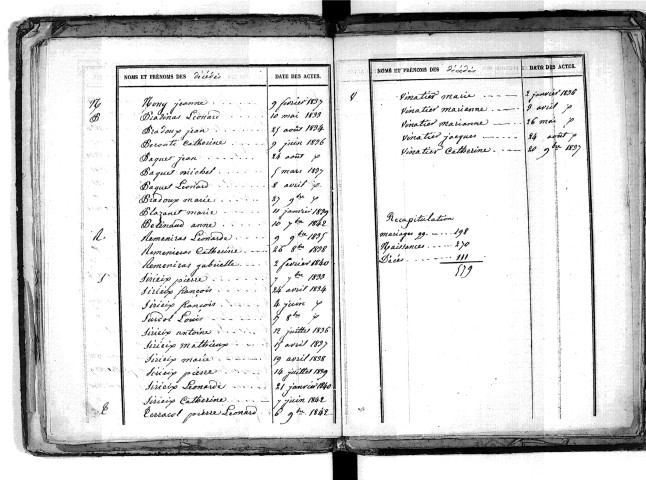 NOMS ET PRÉNOMS DES décédés DATE DES ACTES.
N Nony jeanne 9 février 1837
P Léonard 10 mai 1833
Pradoux jean 25 août 1834
Catherine 9 juin 1836
Paquet jean 24 août
Paquet michel 5 mars 1837
Paquet Léonard 8 avril
Pradoux marie 27 9bre
Plazanet marie 11 janvier 1839
anne 10 7bre 1842
R Léonarde 9 9bre 1835
Catherine 26 8bre 1838
gabrielle 2 février 1840
S Sirieix pierre 7 7bre 1833
Sirieix françois 24 avril 1834
Sirieix françois 4 juin
Surdol Louis 8bre
Sirieix antoine 12 juillet 1836
Sirieix mathieux avril 1837
Sirieix marie 19 avril 1838
Sirieix pierre 14 juillet 1839
Sirieix Léonarde 21 janvier 1840
Sirieix Catherine 7 juin 1842
T Terracol pierre Léonard 6 9bre 1842
NOMS ET PRÉNOMS DES décédés DATE DES ACTES.
V Vinatier marie 2 janvier 1836
Vinatier marianne 8 avril
Vinatier marianne 26 mai
Vinatier jacques 24 août
Vinatier Catherine 20 9bre 1837
Recapitulation
mariages 198
Naissances 270
Décés 111
579